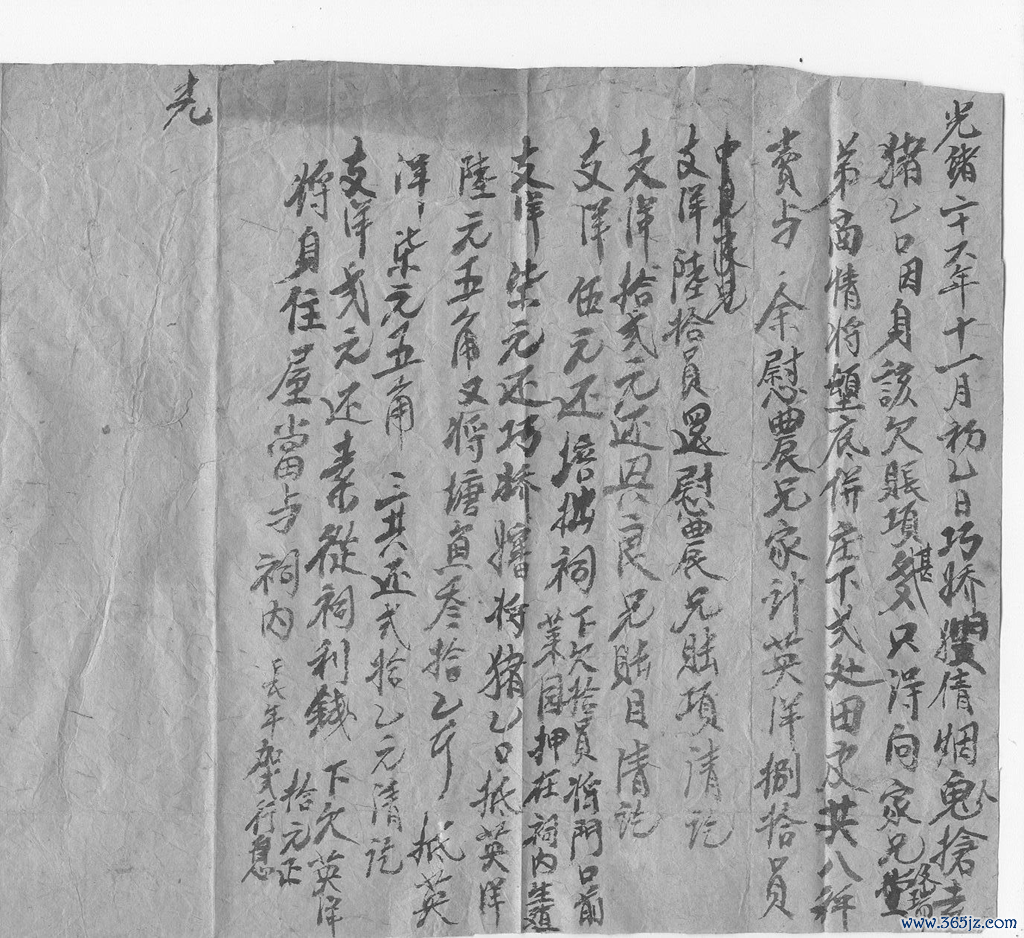 光緒二十六年十一月初乙日巧娇嬸倩烟鬼人搶去
猪乙口因身該欠賬項甚多只得向家兄堂
弟商情将壟底併庄下弍处田皮共八秤
賣与余慰農兄家計英洋捌拾員
中見
支洋陸拾員還慰農兄賬項清訖
支洋拾弍元还興良兄賬目清訖
支洋伍元还培拙祠下欠拾員将門口前
菜园押在祠内生殖
支洋柒元还巧娇嬸将猪乙口抵英洋
陸元五角又将塘魚叁拾乙斤抵英
洋柒元五角三共还弍拾乙元清訖
支洋弍元还素從祠利錢下欠英洋
拾元正
将身住屋當与祠内長年加弍行息
光
www.365jz.com